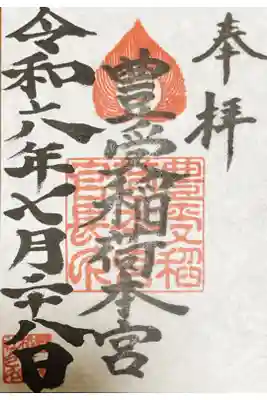 奉拝
豊受稲荷本宮
豊受稲
令和六年七月二十八日